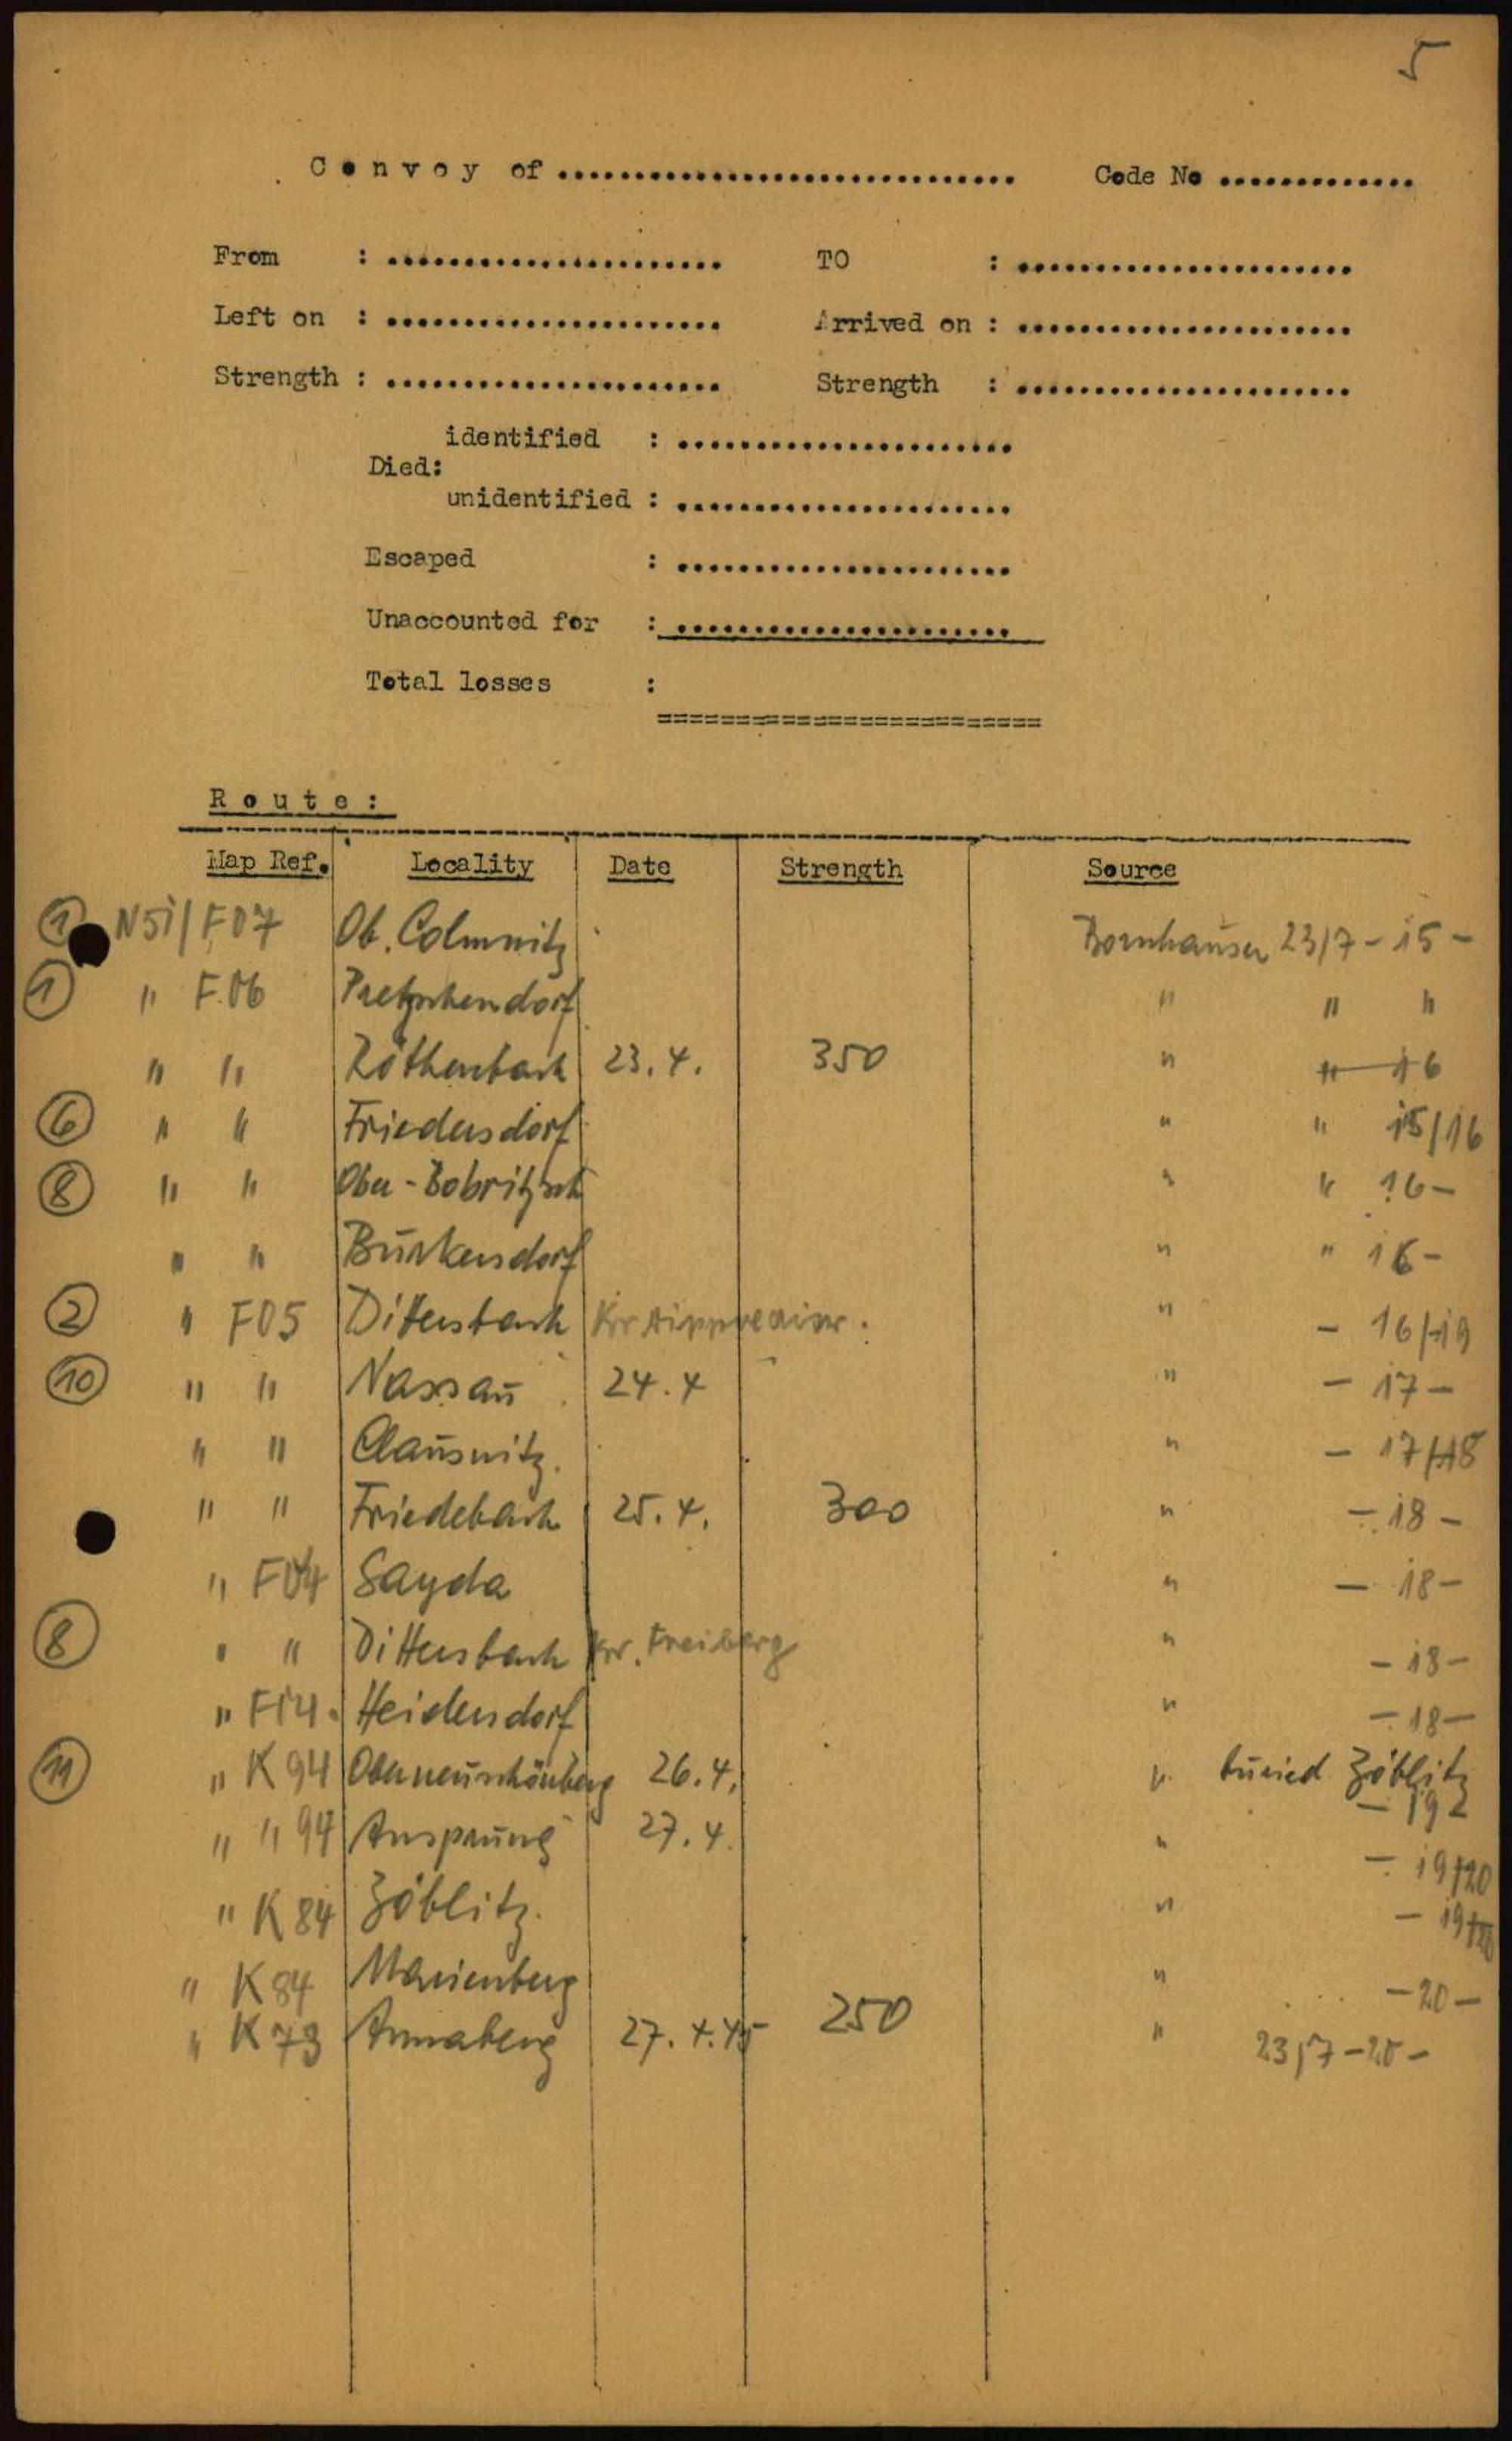 5
Convoy of .............................. Code No .............
From : ...................... TO : ......................
Left on : ...................... Arrived on : ......................
Strength : ...................... Strength : ......................
identified : ......................
Died:
unidentified : ......................
Escaped : ......................
Unaccounted for : ......................
Total losses :
=========================
Route:
Map Ref. Locality Date Strength Source
① N51/F07 Ob. Colmnitz Bornhauser 23/7 - 15 -
① " F.06 Pretzschendorf " " "
" " Röthenbach 23.4. 350 " " 16
⑥ " " Friedersdorf " " 15/16
⑧ " " Ober-Bobritzsch " " 16-
" " Burkersdorf " " 16-
② " F05 Dittersbach Kr " - 16/19
⑩ " " Nassau 24.4 " - 17 -
" " Clausnitz. " - 17/18
" " Friedebach 25.4. 300 " - 18 -
" F04 Sayda " - 18 -
⑧ " " Dittersbach Kr. Freiberg " - 18 -
" F14. Heidersdorf " - 18 -
⑪ " K94 Oberneuschönberg 26.4. " buried Zöblitz
- 19 2
" " 94 Ansprung 27.4. " - 19/20
" K84 Zöblitz. " - 19/20
" K84 Marienberg " - 20 -
" K73 Annaberg 27.4.45 250 " 23/7 - 20 -